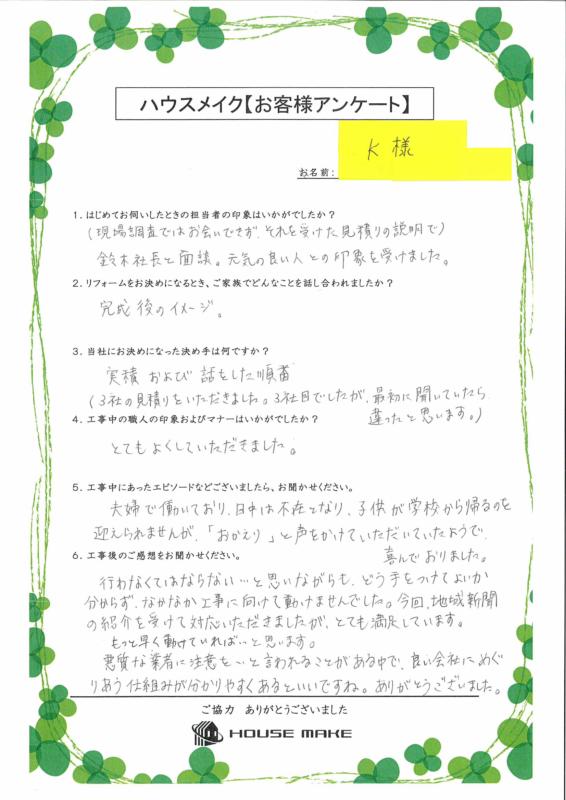 ハウスメイク【お客様アンケート】
お名前: K 様
1. はじめてお伺いしたときの担当者の印象はいかがでしたか?
(現場調査ではお会いできず、それを受けた見積りの説明で)
鈴木社長と面談。元気の良い人との印象を受けました。
2. リフォームをお決めになるとき、ご家族でどんなことを話し合われましたか?
完成後のイメージ。
3. 当社にお決めになった決め手は何ですか?
実積 および 話をした順番
(3社の見積りをいただきました。3社目でしたが、最初に聞いていたら
違ったと思います。)
4. 工事中の職人の印象およびマナーはいかがでしたか?
とてもよくしていただきました。
5. 工事中にあったエピソードなどございましたら、お聞かせください。
夫婦で働いており、日中は不在となり、子供が学校から帰るのを
迎えられませんが、「おかえり」と声をかけていただいていたようで、
喜んでおりました。
6. 工事後のご感想をお聞かせください。
行わなくてはならない…と思いながらも、どう手をつけてよいか
分からず、なかなか工事に向けて動けませんでした。今回、地域新聞
の紹介を受けて対応いただきましたが、とても満足しています。
もっと早く動けていれば…と思います。
悪質な業者に注意を…と言われることがある中で、良い会社にめぐ
りあう仕組みが分かりやすくあるといいですね。ありがとうございました。
ご協力 ありがとうございました
HOUSE MAKE